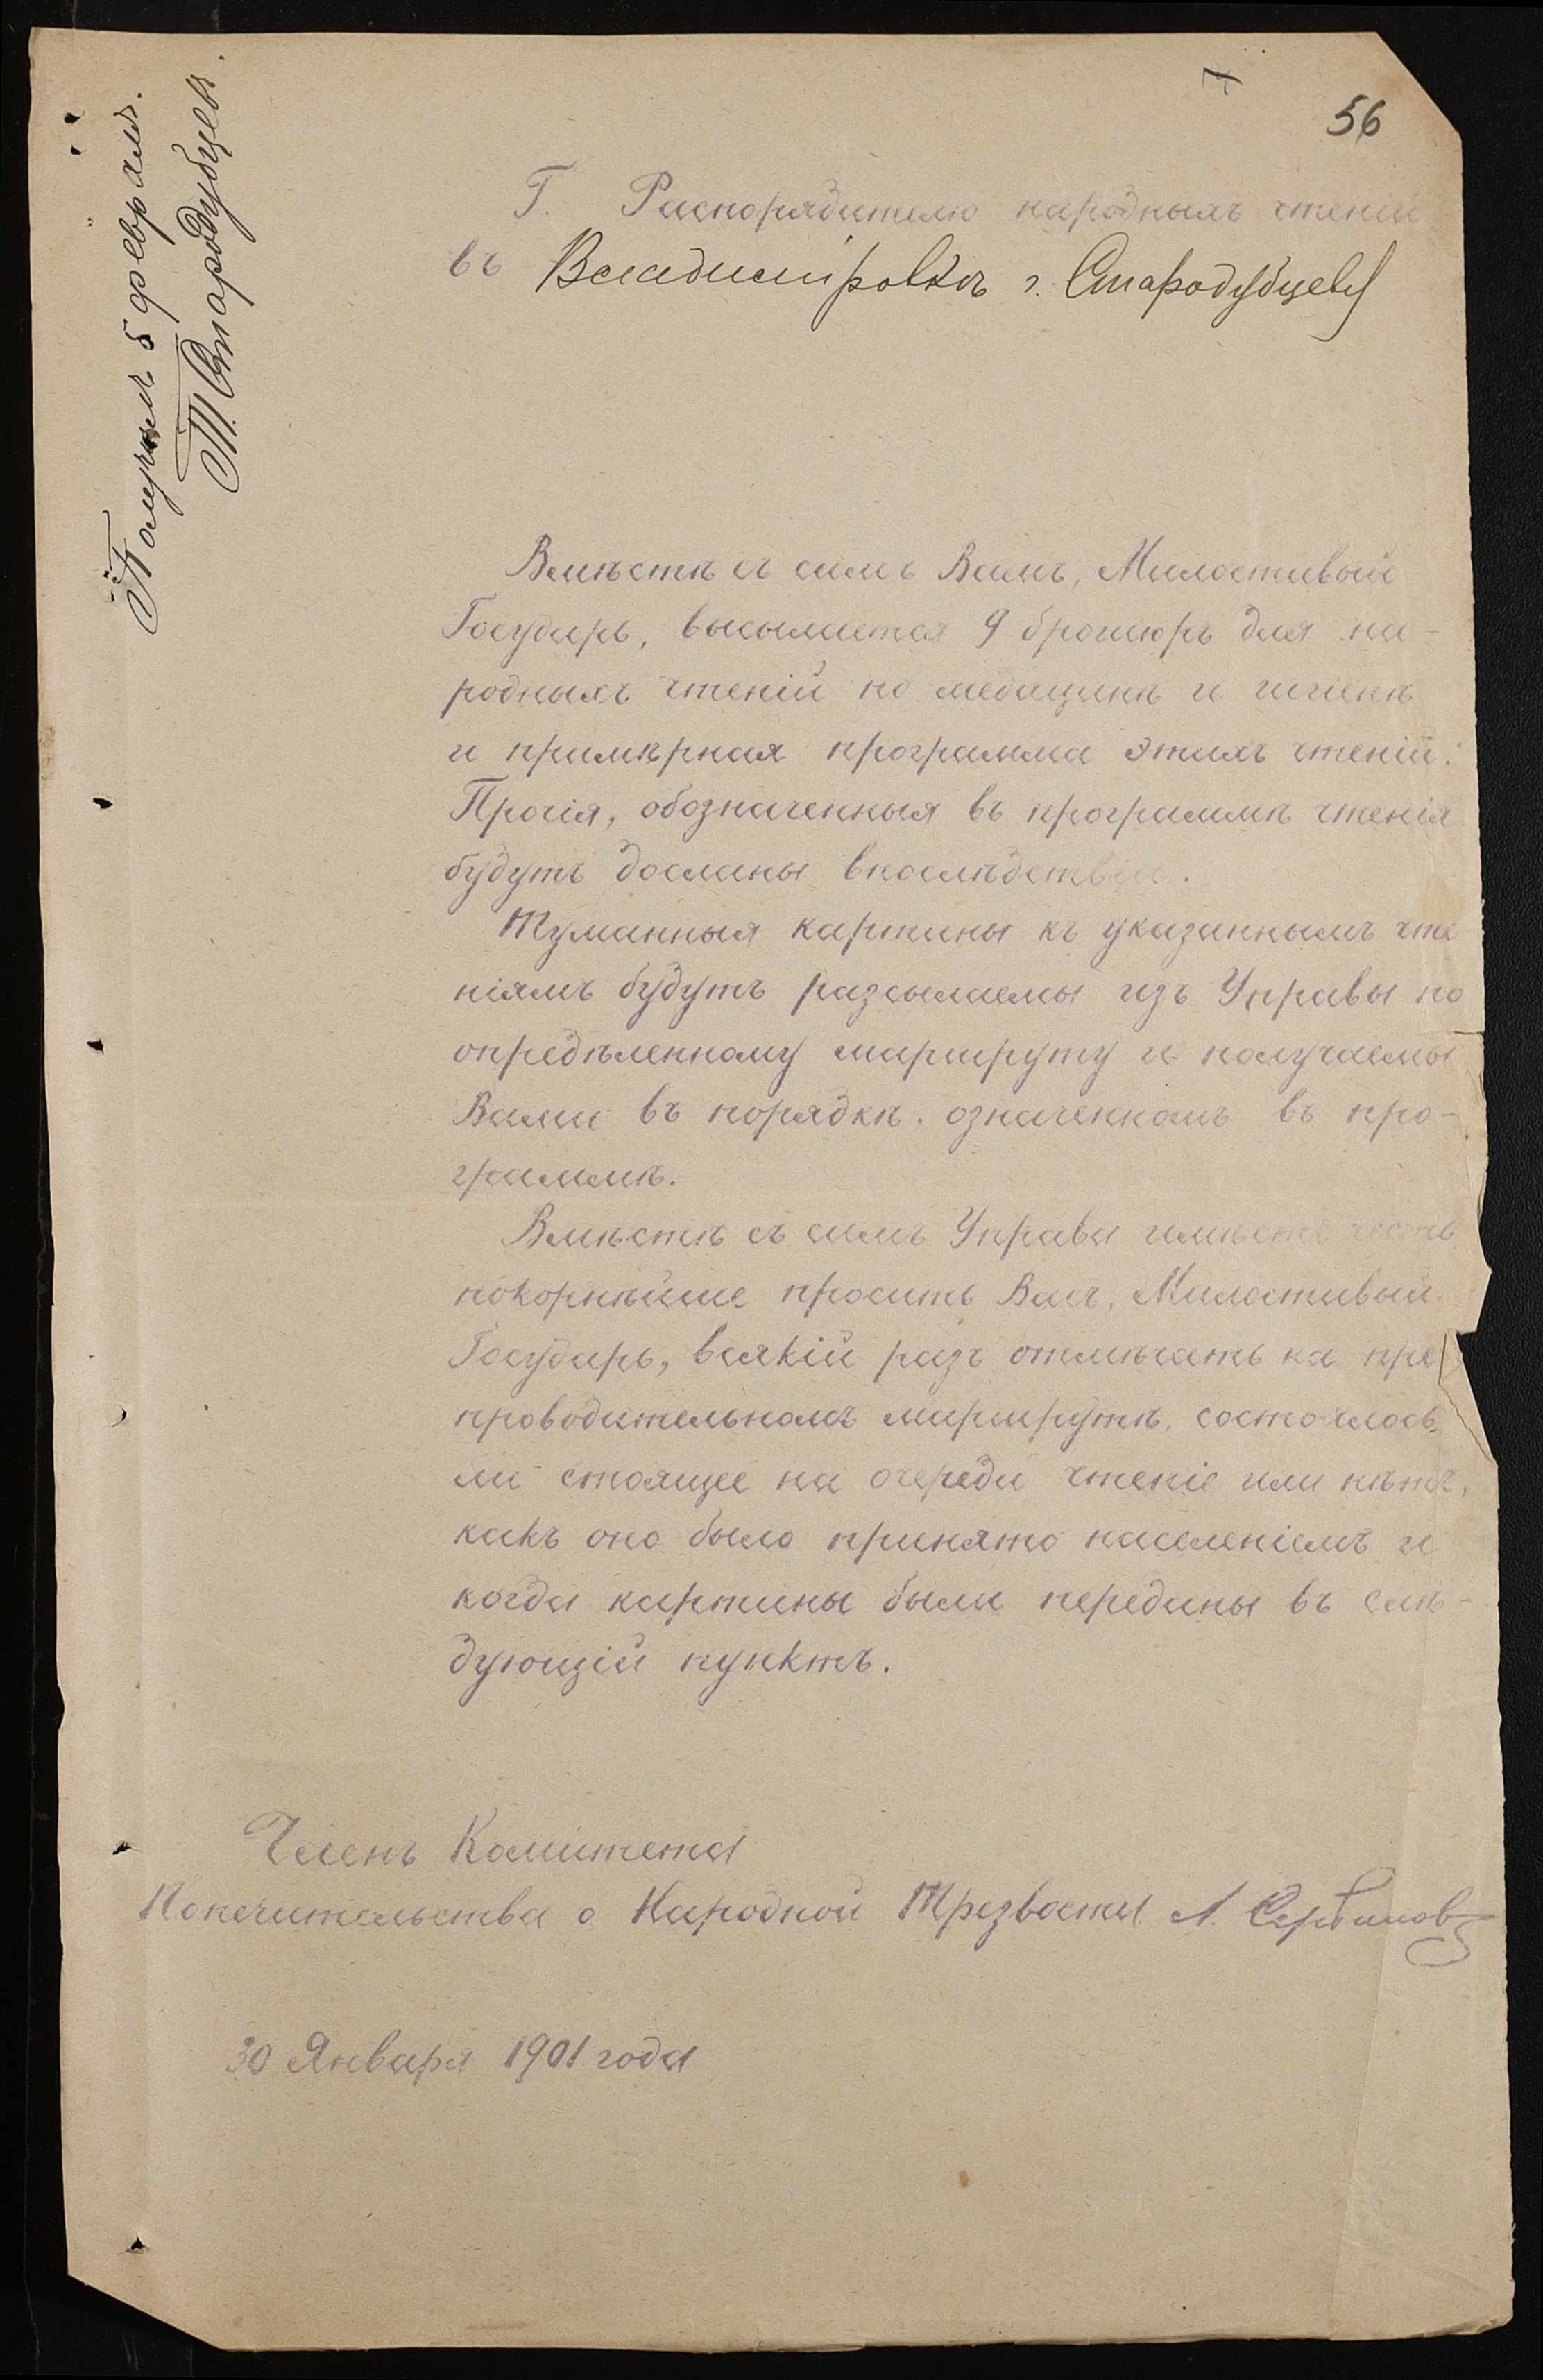 56
Получилъ 5 февраля.
Т. Стародубцевъ.
Г. Распорядителю народныхъ чтеній
въ Владиміровкѣ г. Стародубцеву
Вмѣстѣ съ симъ Вамъ, Милостивый
Государь, высылается 9 брошюръ для на-
родныхъ чтеній по медицинѣ и гигіенѣ
и примѣрная программа этихъ чтеній.
Прочія, обозначенныя въ программѣ чтенія
будутъ досланы впослѣдствіи.
Туманныя картины къ указаннымъ чте
ніямъ будутъ разсылаемы изъ Управы по
опредѣленному маршруту и получаемы
Вами въ порядкѣ, означенномъ въ про-
граммѣ.
Вмѣстѣ съ симъ Управа имѣетъ честь
покорнѣйше просить Васъ, Милостивый
Государь, всякій разъ отмѣчать на пре
проводительномъ маршрутѣ, состоялось
ли стоящее на очереди чтеніе или нѣтъ,
какъ оно было принято населеніемъ и
когда картины были переданы въ слѣ-
дующій пунктъ.
Членъ Комитета
Попечительства о Народной Трезвости А.
30 Января 1901 года